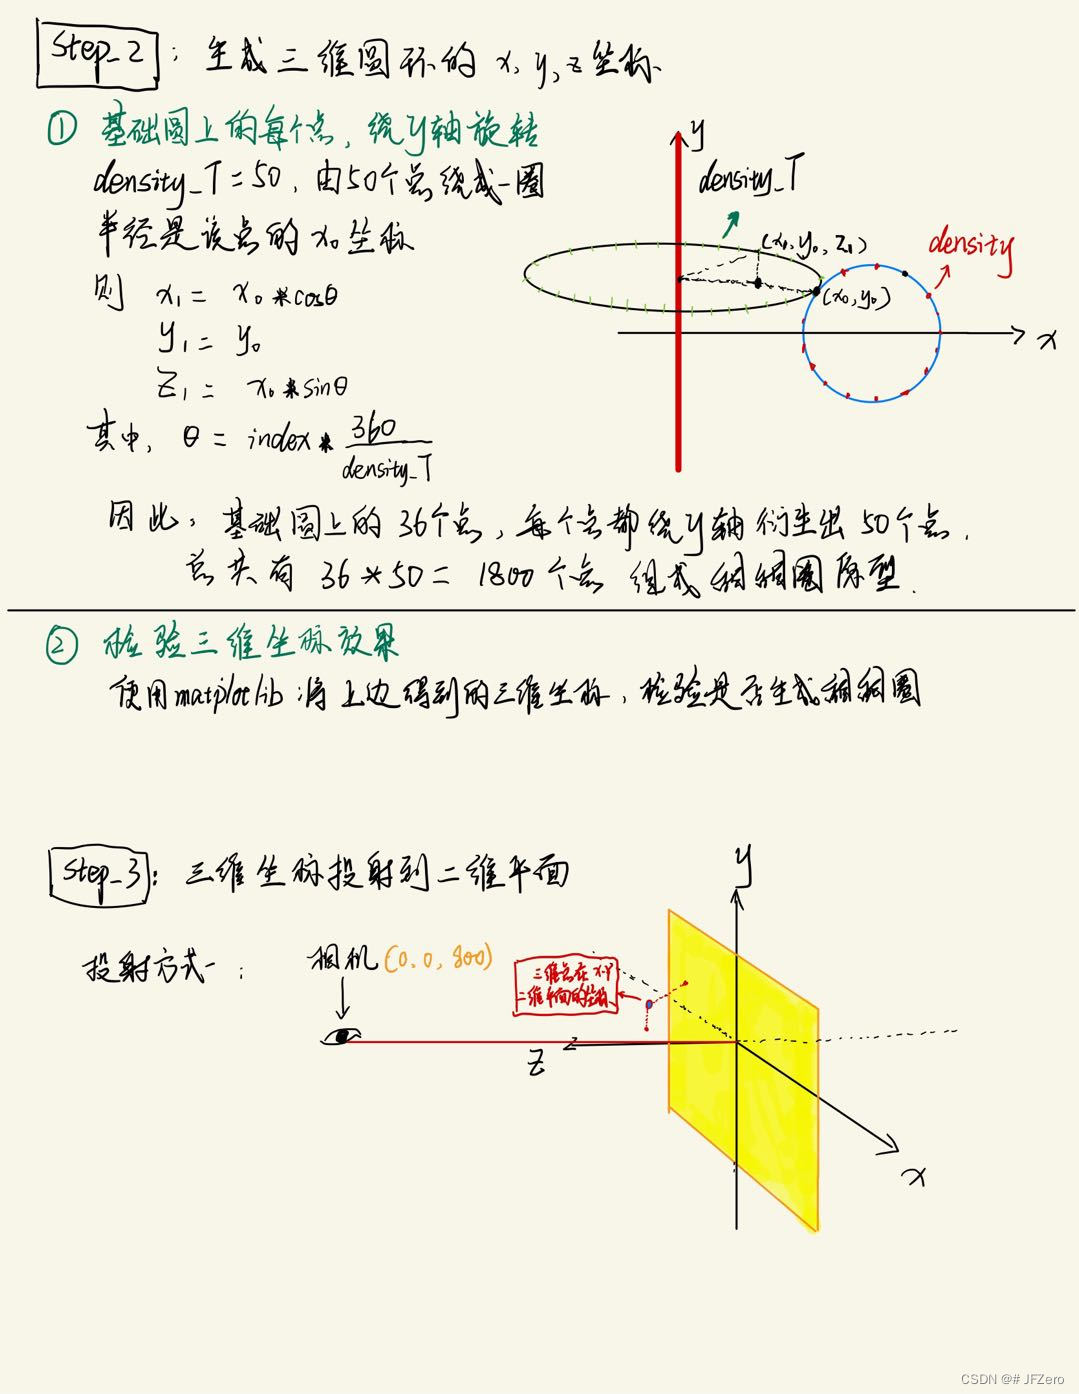 Step_2: 生成三维圆环的 x, y, z 坐标
① 基础圆上的每个点, 绕y轴旋转
density_T=50, 由50个点绕成一圈
半径是该点的 x₀ 坐标
则 x₁ = x₀*cosθ
y₁ = y₀
z₁ = x₀*sinθ
其中, θ = index * 360/density_T
y
density_T
(x₁, y₀, z₁)
density
(x₀, y₀)
x
因此, 基础圆上的 36个点, 每个点都绕y轴衍生出 50个点.
总共有 36*50 = 1800个点 组成 圈原型.
② 检验三维坐标效果
使用matplotlib 将上边得到的三维坐标, 检验是否生成 圈
Step_3: 三维坐标投射到二维平面
投射方式一:
相机 (0, 0, 800)
三维点在 X-Y
二维平面的坐标
y
z
x
CSDN @# JFZero